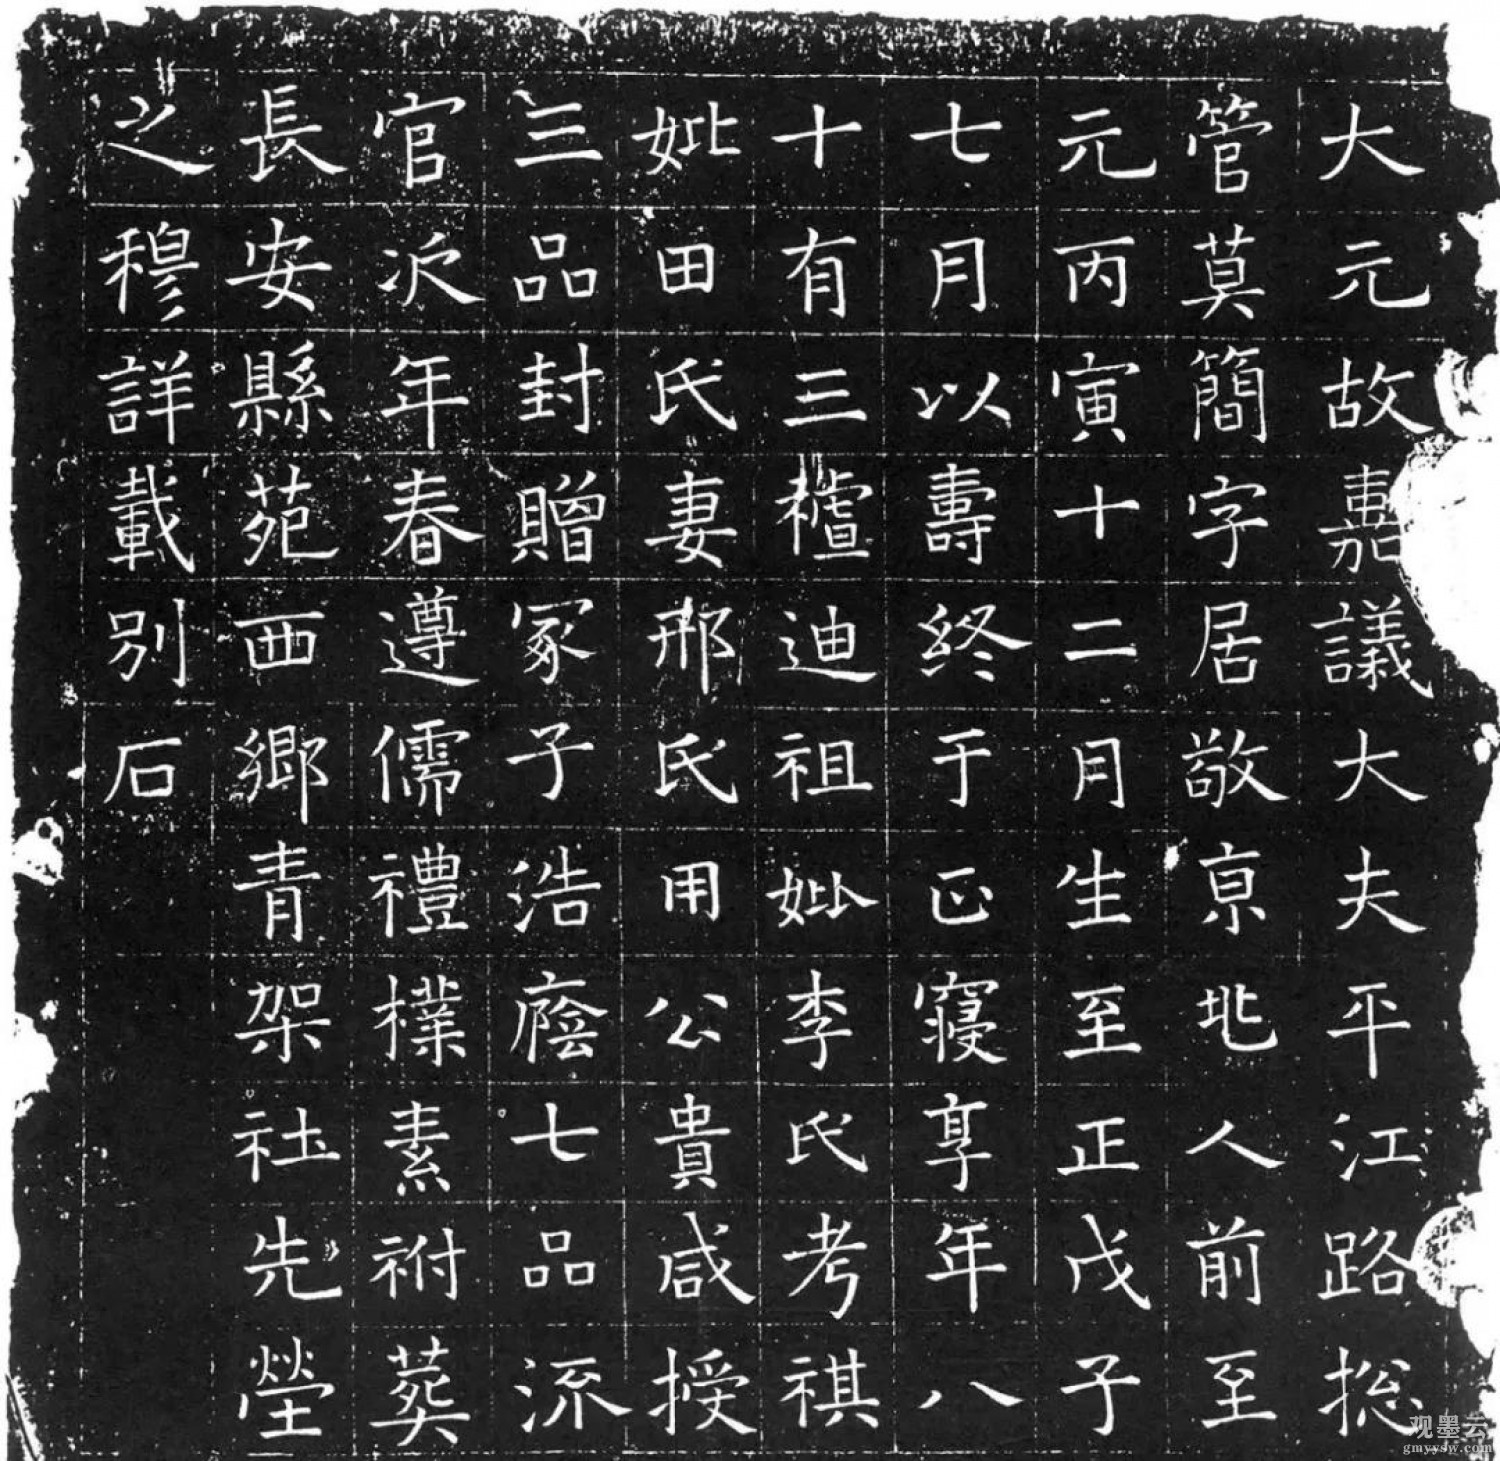 大元故嘉議大夫平江路総
管莫簡字居敬亰兆人前至
元丙寅十二月生至正戊子
七月以壽終于正寢享年八
十有三迪祖妣李氏考祺
妣田氏妻邢氏用公貴咸授
三品封贈冢子浩廕七品流
官次年春遵儒禮樸素祔葬
長安縣苑西鄉青架社先塋
之穆詳載別石
观墨云
gmyysw.com